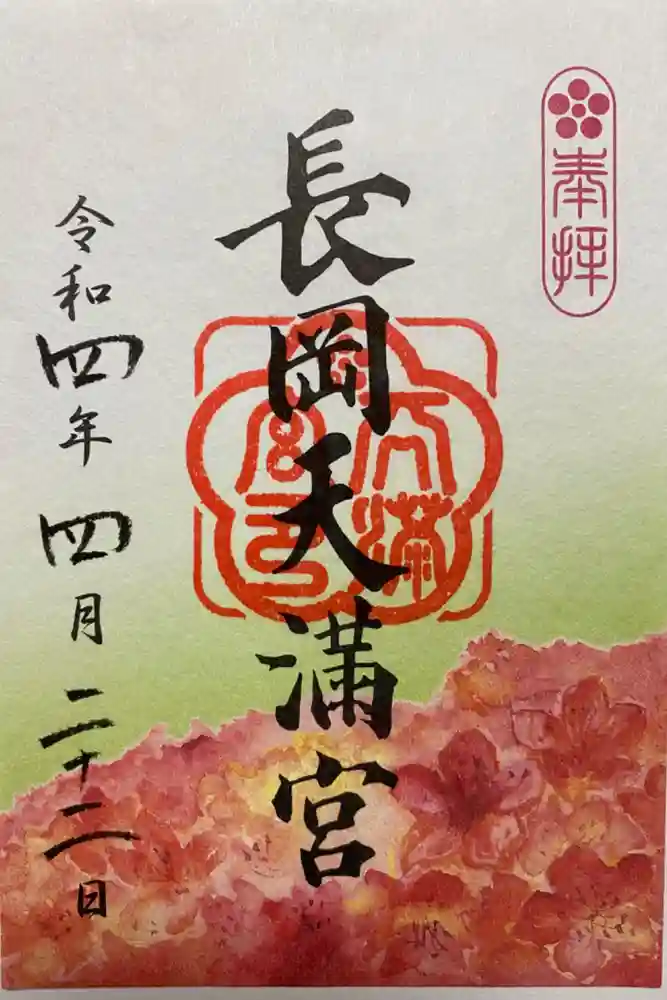 奉拝
長岡天満宮
天満宮印
令和四年四月二十二日